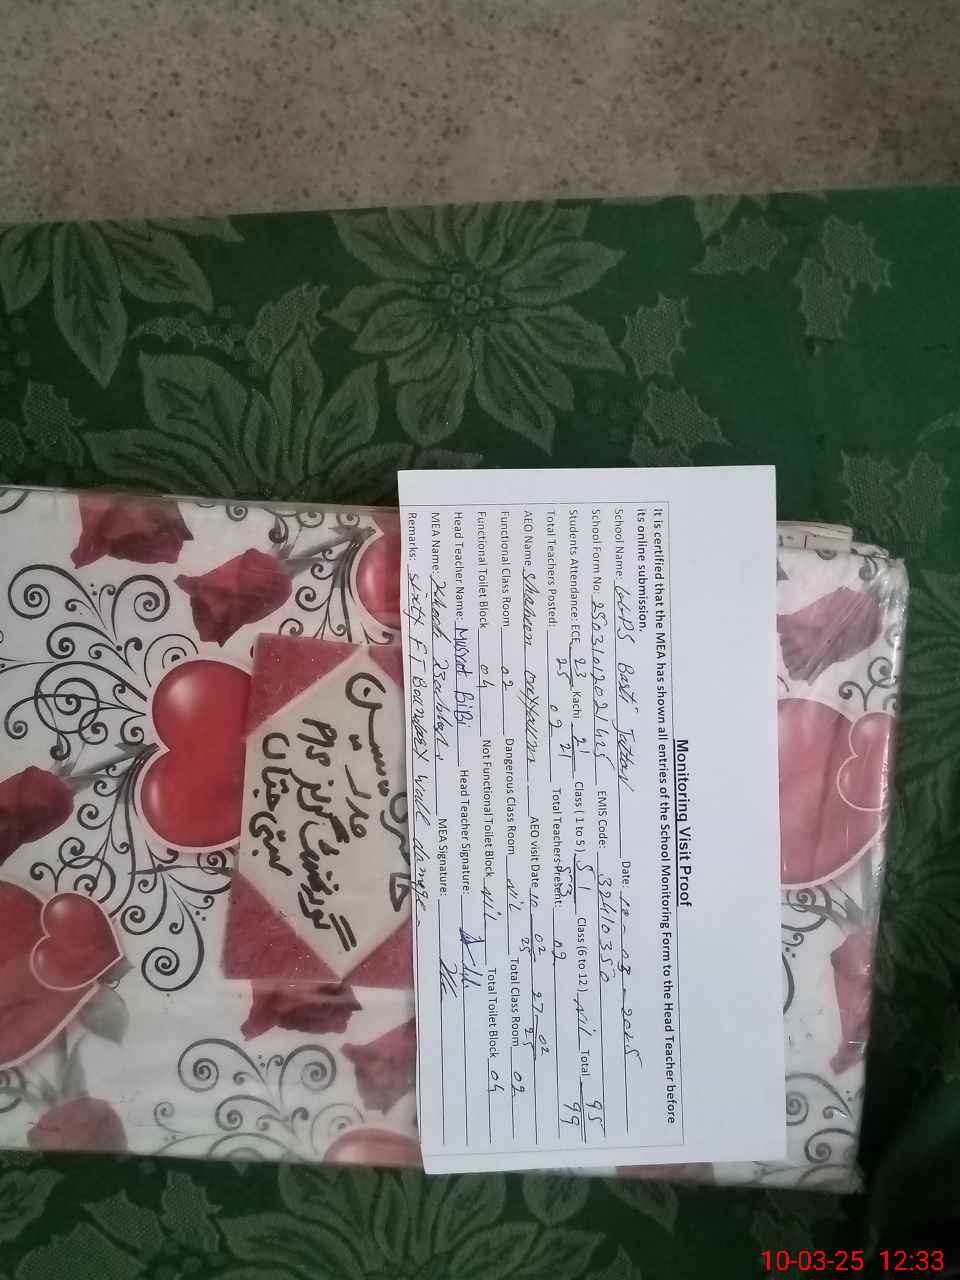 Monitoring Visit Proof
It is certified that the MEA has shown all entries of the School Monitoring Form to the Head Teacher before
its online submission.
School Name: GGPS Basti Jattan Date: 10-03-2025
School Form No: EMIS Code: 32410350
Students Attendance: ECE 23/25 Kachi 21/21 Class (1 to 5) 51/53 Class (6 to 12) Nil Total 95/99
Total Teachers Posted: 02 Total Teachers Present: 02
AEO Name Shaheen AEO visit Date 10-02-25 27-02-25
Functional Class Room 02 Dangerous Class Room Nil Total Class Room 02
Functional Toilet Block 04 Not Functional Toilet Block Nil Total Toilet Block 04
Head Teacher Name: Musrat BiBi Head Teacher Signature:
MEA Name: MEA Signature:
Remarks: sixty FT Boundary wall damage
گورنمنٹ گرلز
بستی جتاں
10-03-25 12:33